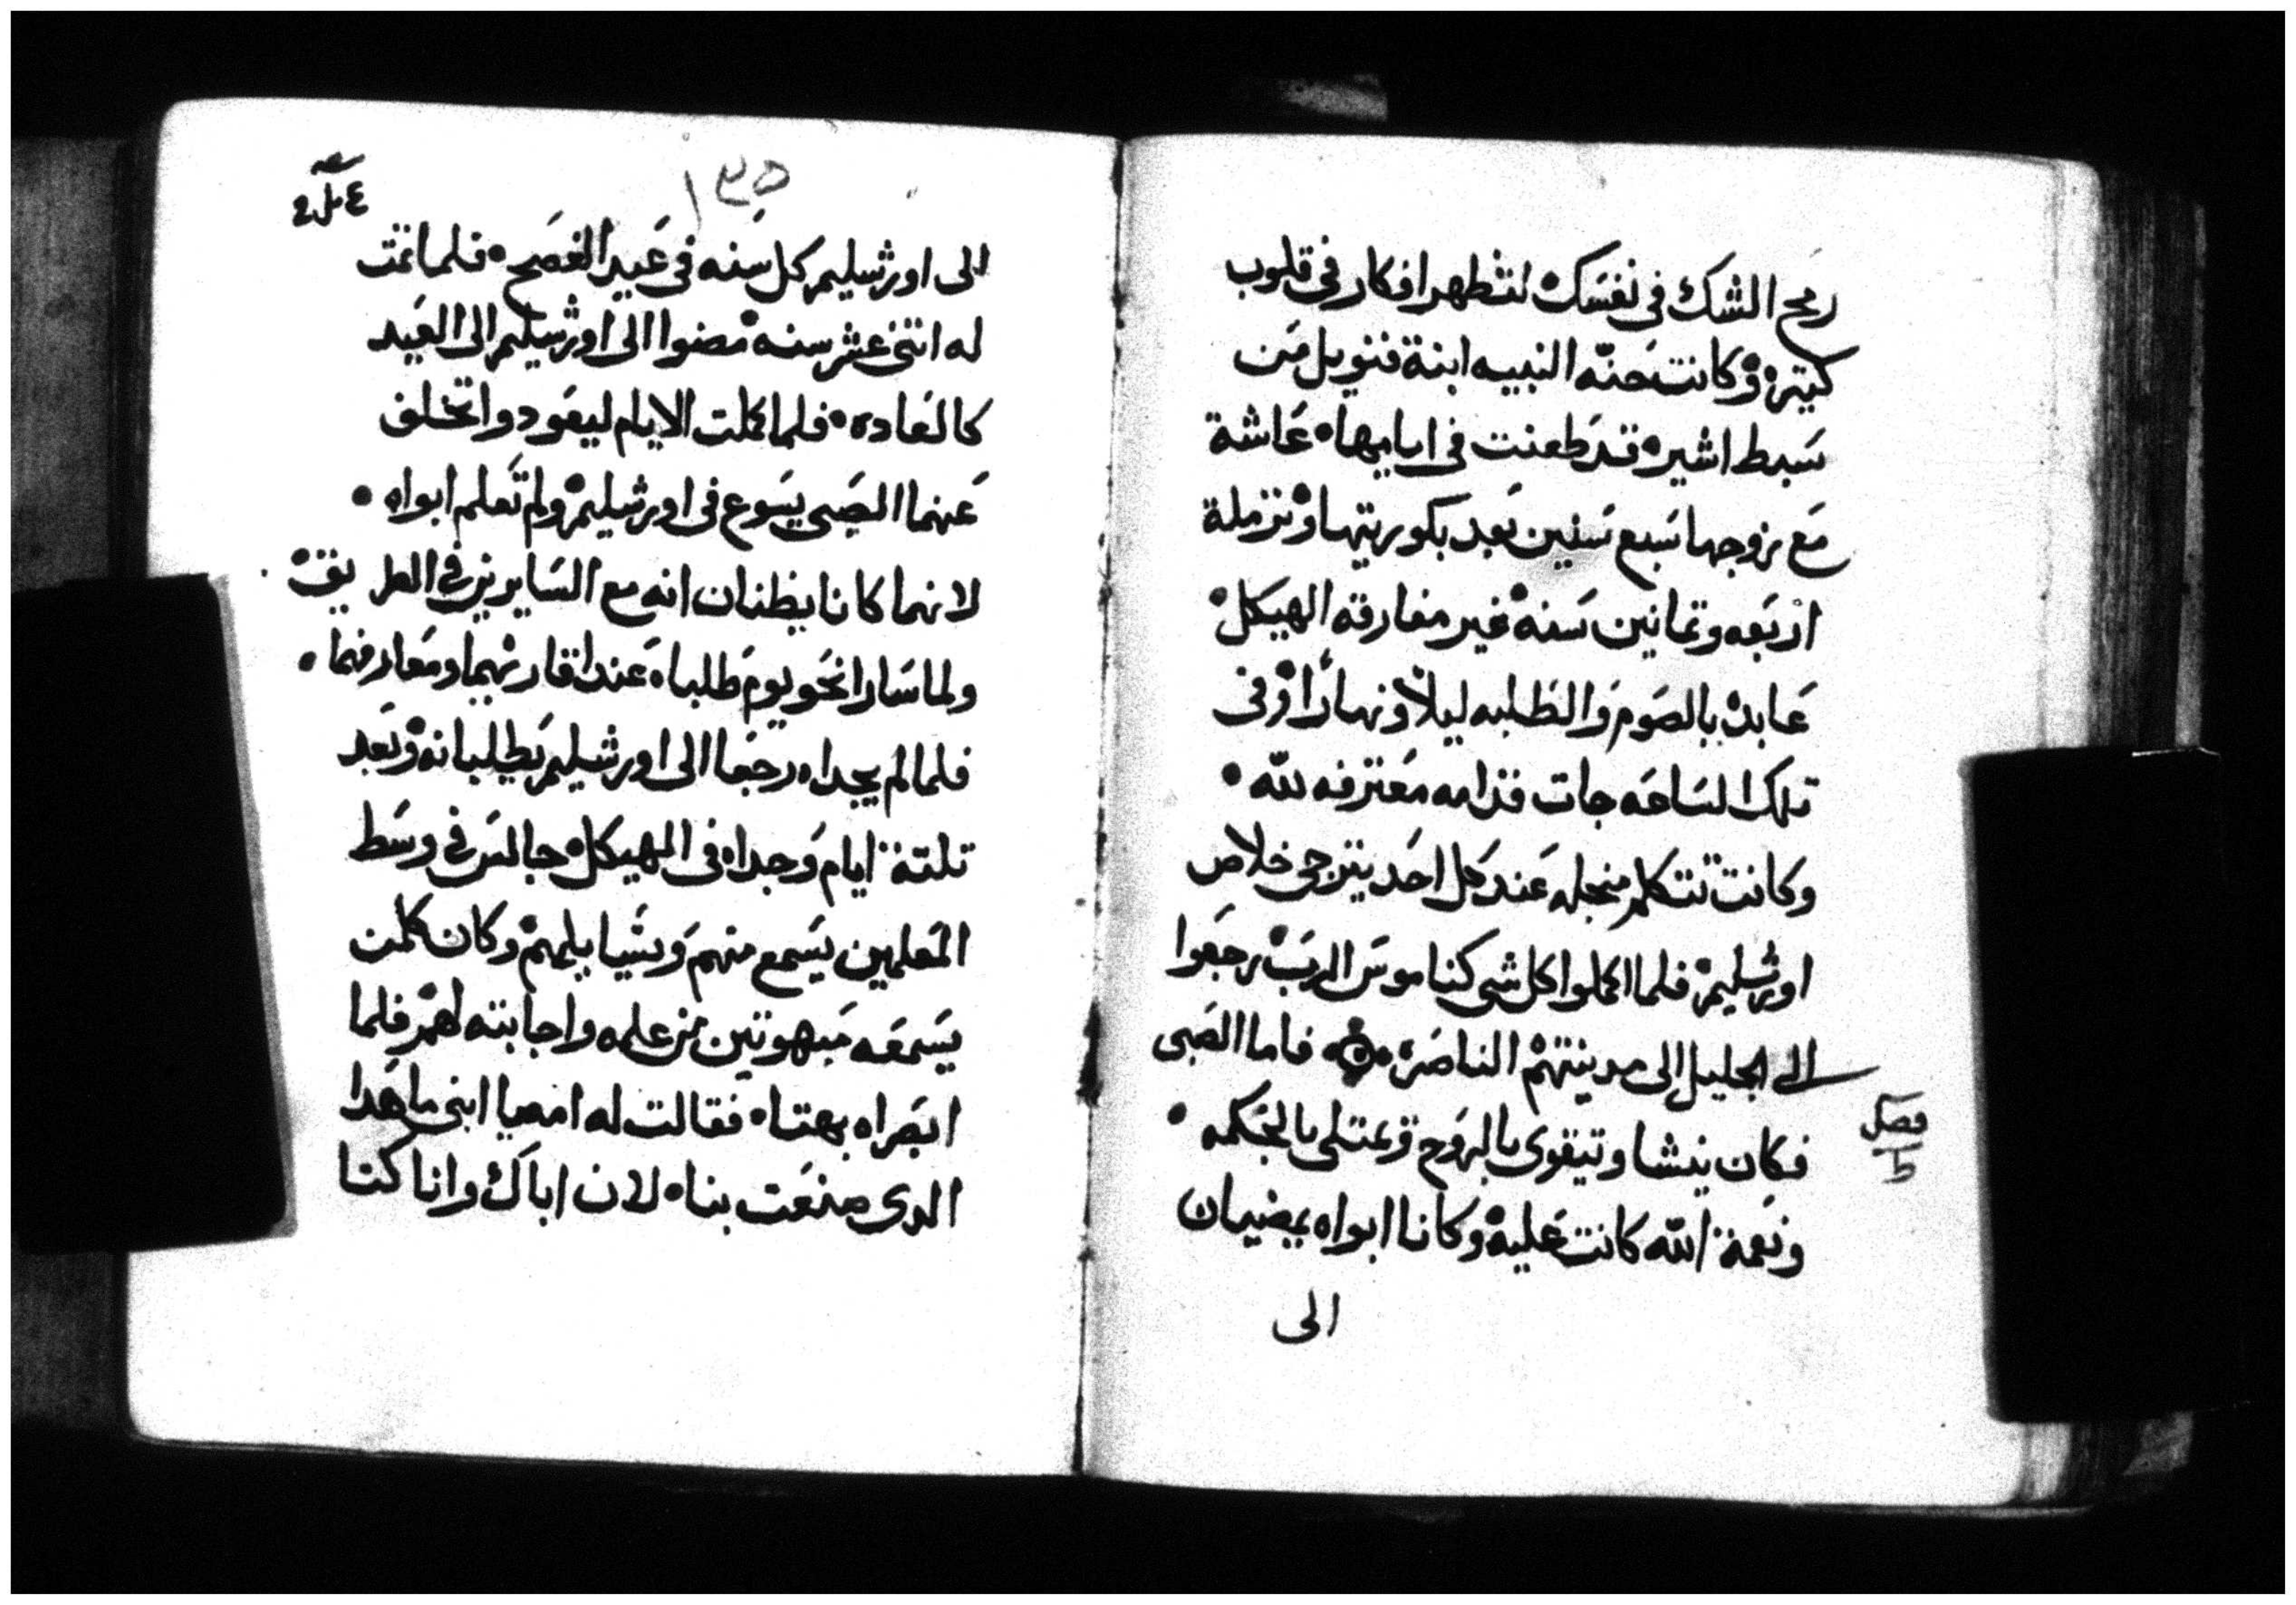 رمح الشك في نفسك لتظهر افكار في قلوب
كتيره وكانت حنّه النبيه ابنة فنويل من
سبط اشير قد طعنت في ايامها عاشة
مع زوجها سبع سنين بعد بكوريتها وترملة
اربعه وتمانين سنه غير مفارقه الهيكل
عابده بالصوم والطلبه ليلاً ونهاراً وفي
تلك الساعه جات قدامه معترفه لله
وكانت تتكلم منجله عند كل احد يترجى خلاص
اورشليم فلما اكملوا كل شى كناموس الرب رجعوا
الى الجليل الى مدينتهم الناصره فاما الصبى
فصل
ط
فكان ينشا ويتقوى بالروح ويمتلى بالحكمه
ونعمة الله كانت عليه وكانا ابواه يمضيان
الى
١٣٥
الى اورشليم كل سنه في عيد الفصح فلما تمت
له اتنى عشر سنه مضوا الى اورشليم الى العيد
كالعاده فلما كملت الايام ليعودوا تخلف
عنهما الصبى يسوع في اورشليم ولم تعلم ابواه
لانهما كانا يظنان انه مع السايرين في الطريق
ولما سارا نحو يوم طلباه عند اقاربهما ومعارفهما
فلما لم يجداه رجعا الى اورشليم يطلبانه وبعد
تلتة ايام وجداه في الهيكل جالس في وسط
المعلمين يسمع منهم ويسايلهم وكان كلمن
يسمعه مبهوتين من علمه واجابته لهم فلما
ابصراه بهتاه فقالت له امه يا ابنى ما هدا
الدى صنعت بنا لان اباك وانا كنا